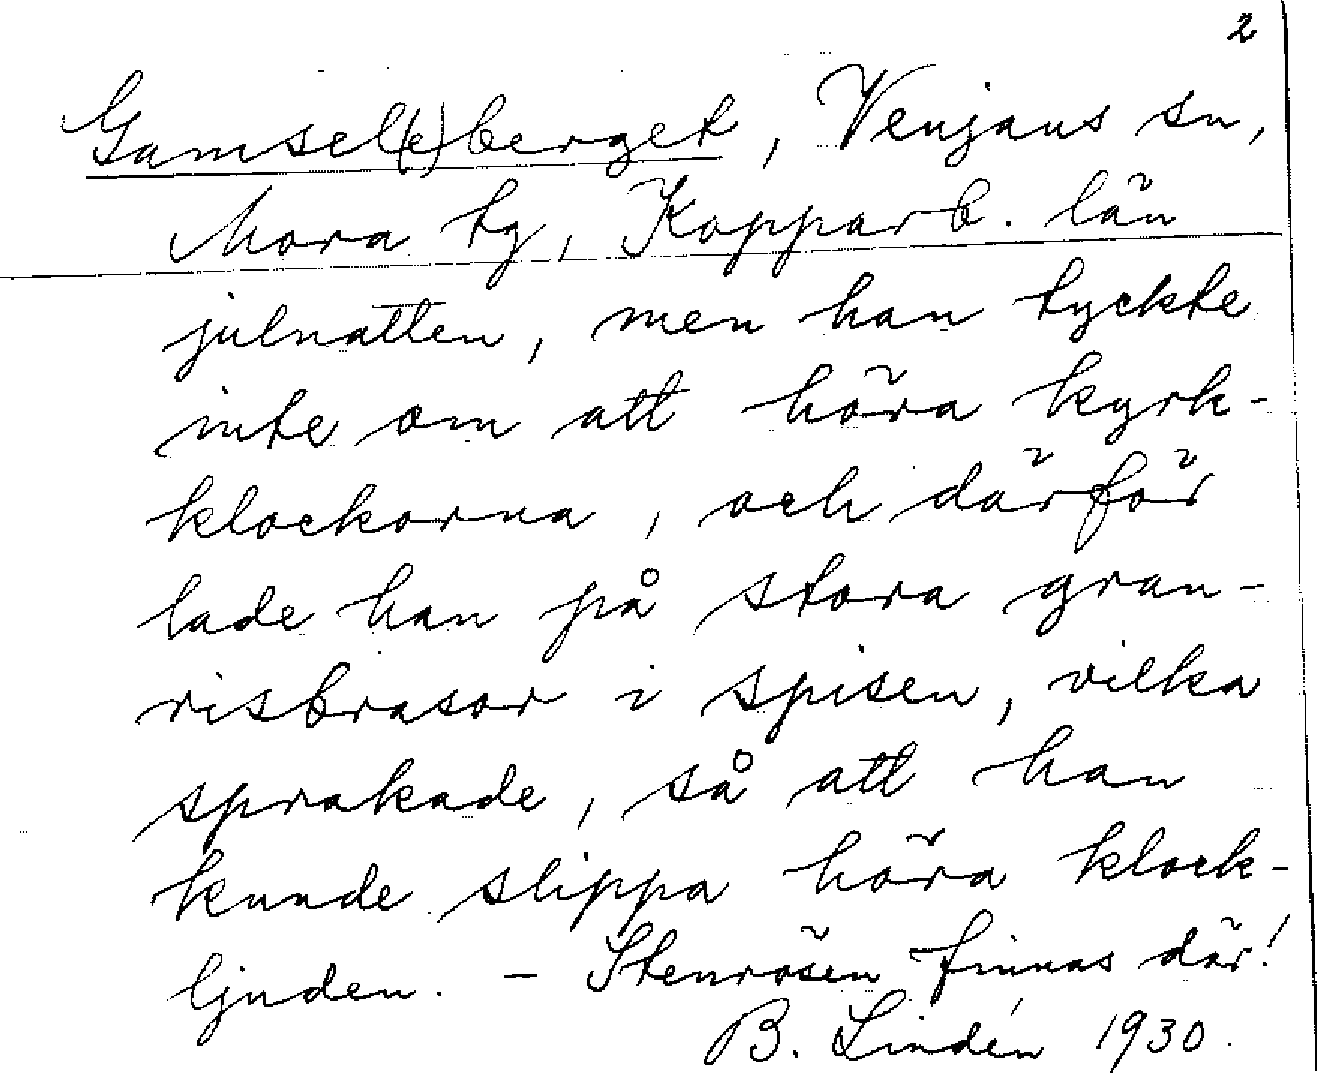 2
Gamsel(e)berget, Venjans sn,
Mora tg, Kopparb. län
julnatten, men han tyckte
inte om att höra kyrk-
klockorna, och därför
lade han på stora gran-
risbrasor i spisen, vilka
sprakade, så att han
kunde slippa höra klock-
ljuden. - Stenrösen finnas där!
B. Lindén 1930.